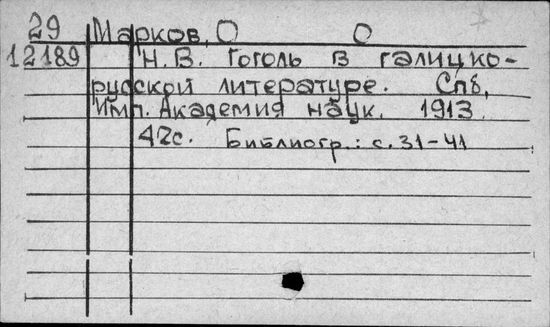 29 Марков, О О
12189 Н.В. Гоголь в галицко-
русской литературе. Спб,
Имп. Академия наук. 1913.
42с. Библиогр.: с.31-41